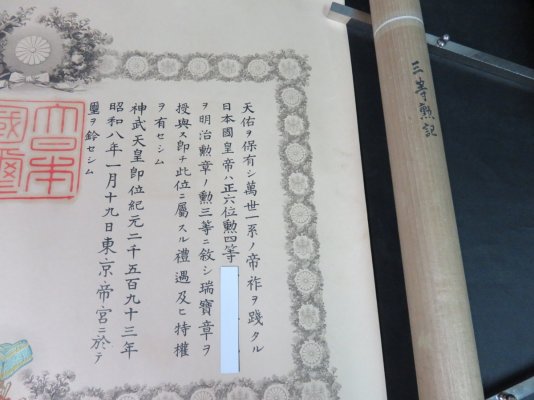 天佑ヲ保有シ萬世一系ノ帝祚ヲ踐タル
日本國皇帝ハ正六位勲四等
ヲ明治勲章ノ勲三等ニ敘シ瑞寶章ヲ
授與ス即チ此位ニ屬スル禮遇及ヒ特權
ヲ有セシム
神武天皇即位紀元二千五百九十三年
昭和八年一月十九日東京帝宮ニ於テ
璽ヲ鈐セシム
大日本
國璽
三等勲記